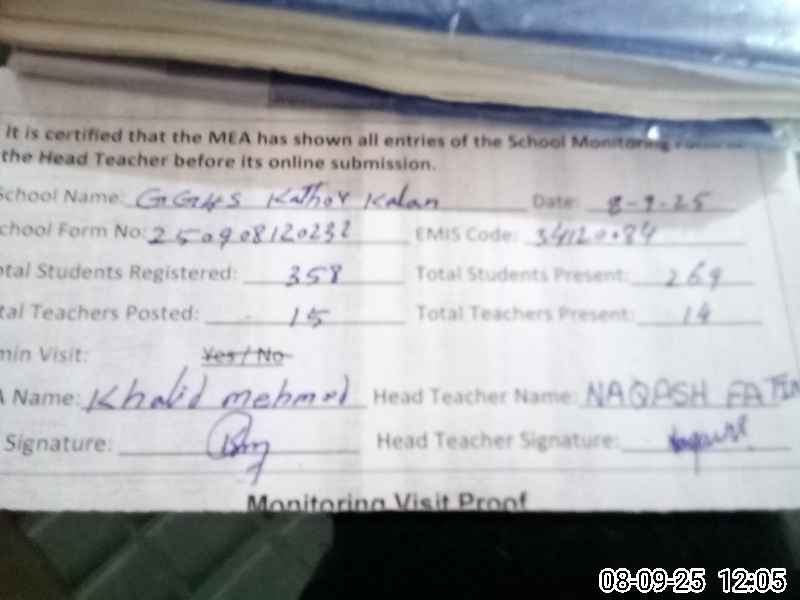 It is certified that the MEA has shown all entries of the School Monitoring
the Head Teacher before its online submission.
School Name: GGHS Kathor Kalan Date: 8-9-25
chool Form No: 250908120232 EMIS Code: 34120084
otal Students Registered: 358 Total Students Present: 269
tal Teachers Posted: 15 Total Teachers Present: 14
min Visit: Yes / No
A Name: Khalid mehmod Head Teacher Name: NAQASH FATIM
Signature: Head Teacher Signature:
Monitoring Visit Proof
08-09-25 12:05